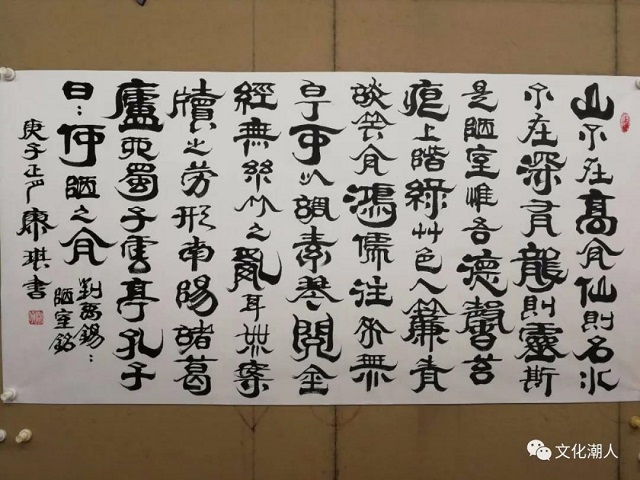 山不在高有仙則名水
不在深有龍則靈斯
是陋室惟吾德馨苔
痕上階綠艸色入簾青
談笑有鴻儒往來無
白丁可以調素琴閱金
經無絲竹之亂耳無案
牘之勞形南陽諸葛
廬西蜀子雲亭孔子
曰:何陋之有
劉禹錫:
陋室銘
庚子正月康琪書
文化潮人